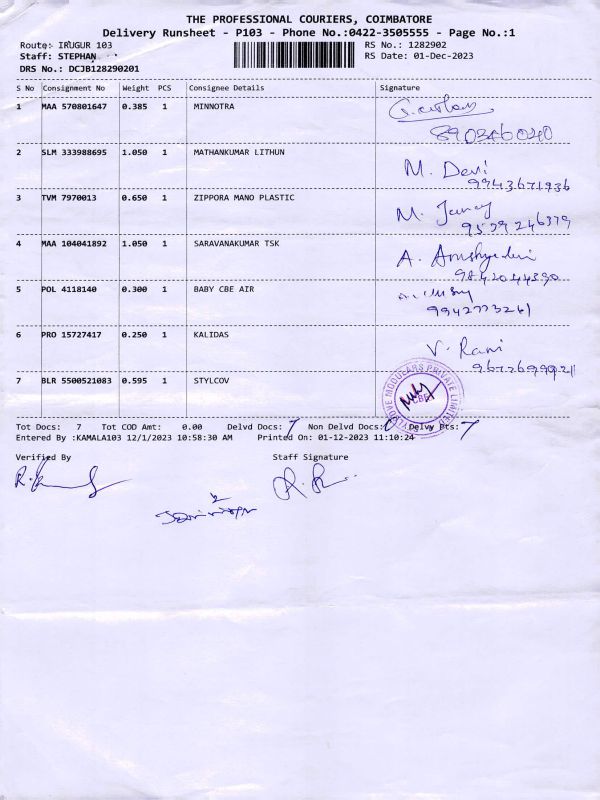 THE PROFESSIONAL COURIERS, COIMBATORE
Delivery Runsheet - P103 - Phone No.:0422-3505555 - Page No.:1
Route:- IRUGUR 103 RS No.: 1282902
Staff: STEPHAN RS Date: 01-Dec-2023
DRS No.: DCJB128290201
S No Consignment No Weight PCS Consignee Details Signature
1 MAA 570801647 0.385 1 MINNOTRA
2 SLM 333988695 1.050 1 MATHANKUMAR LITHUN M. Devi
9943671936
3 TVM 7970013 0.650 1 ZIPPORA MANO PLASTIC M.
4 MAA 104041892 1.050 1 SARAVANAKUMAR TSK A.
9842044390
5 POL 4118140 0.300 1 BABY CBE AIR
9942773261
6 PRO 15727417 0.250 1 KALIDAS V. Rani
7 BLR 5500521083 0.595 1 STYLCOV
Tot Docs: 7 Tot COD Amt: 0.00 Delvd Docs: 7 Non Delvd Docs: 0 Delvy Pts: 7
Entered By :KAMALA103 12/1/2023 10:58:30 AM Printed On: 01-12-2023 11:10:24
Verified By Staff Signature